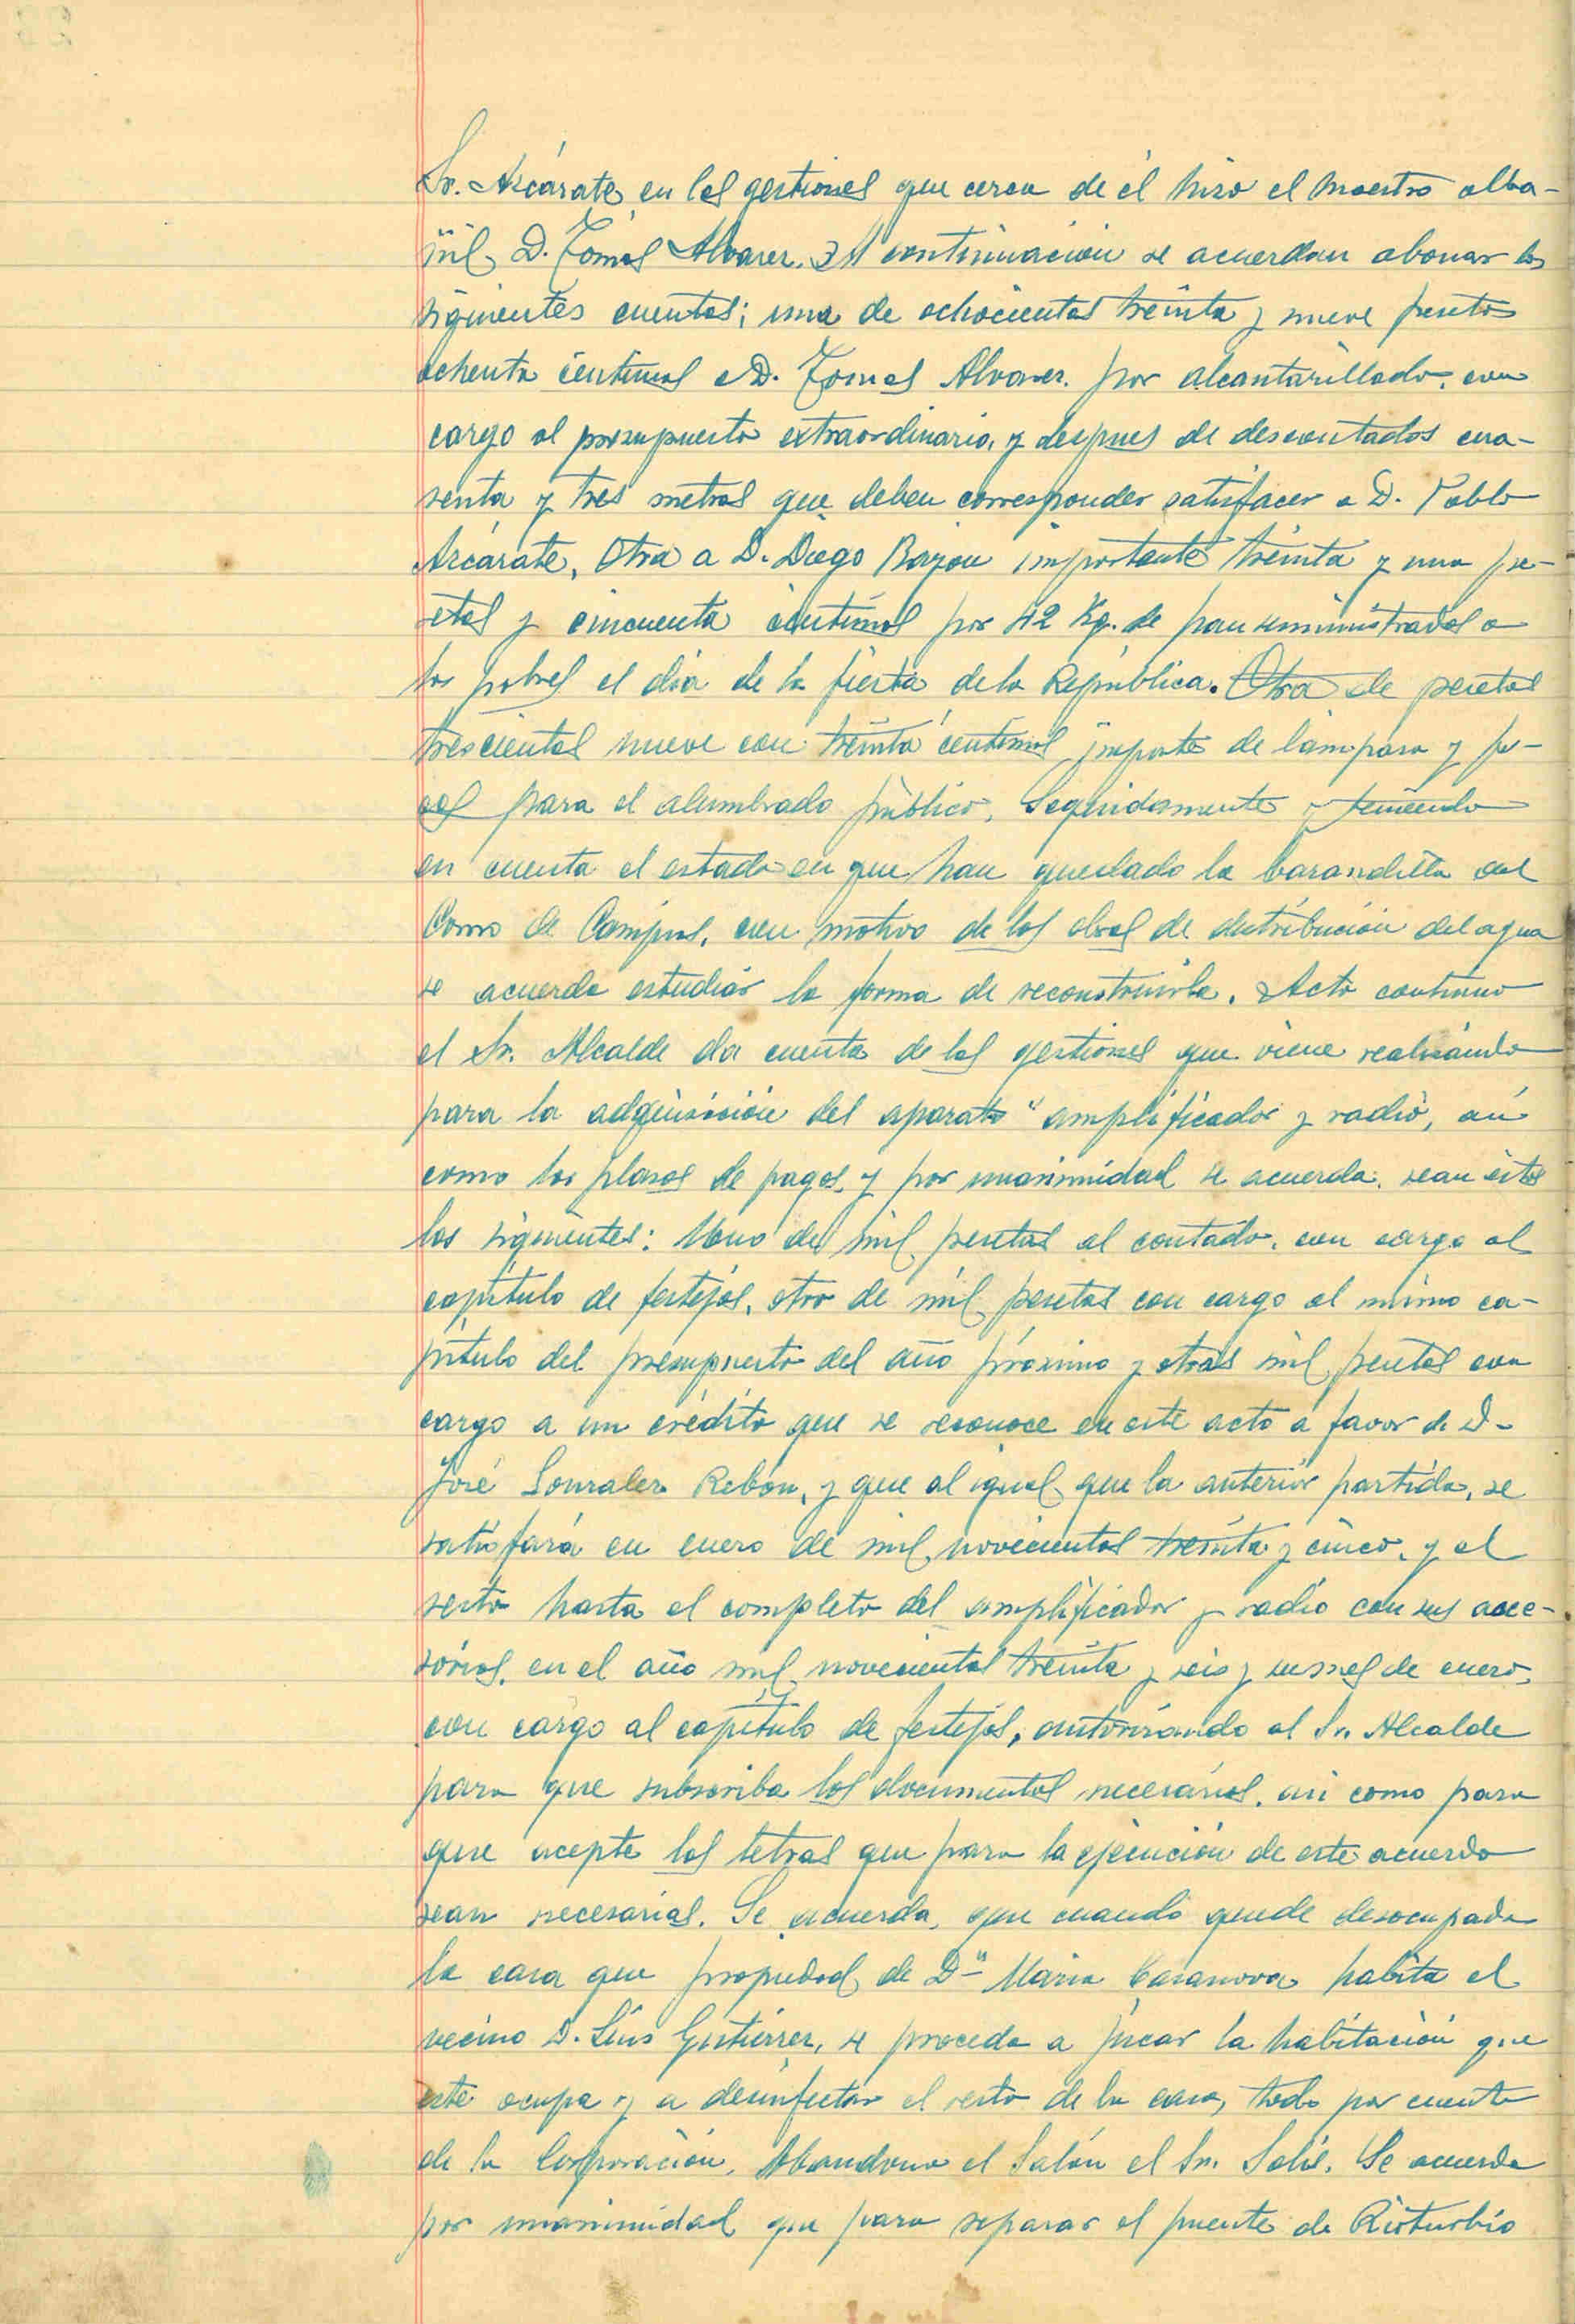 Sr. Azcárate, en las gestiones que cerca de él hizo el maestro alba-
ñil D. Tomás Alvarez. A continuación se acuerdan abonar las
siguientes cuentas; una de ochocientas treinta y nueve pesetas
ochenta centimos a D. Tomas Alvarez. por alcantarillado, con
cargo al presupuesto extraordinario, y despues de descontados cua-
renta y tres metros que deben corresponder satisfacer a D. Pablo
Azcárate, Otra a D. Diego Bazou importante treinta y una pe-
setas y cincuenta centimos por 42 Kg. de pan suministrados a
los pobres el dia de la fiesta de la República. Otra de pesetas
trescientas nueve con treinta centimos importe de lámpara y fo-
cos para el alumbrado público. Seguidamente y teniendo
en cuenta el estado en que han quedado la barandilla del
Corro de Campas, con motivo de las obras de distribución del agua
se acuerda estudiar la forma de reconstruirla. Acto continuo
el Sr. Alcalde da cuenta de las gestiones que viene realizando
para la adquisición del aparato "amplificador y radio, así
como los plazos de pagos, y por unanimidad se acuerda, sean estos
los siguientes: Uno de mil pesetas al contado, con cargo al
capítulo de festejos, otro de mil pesetas con cargo al mismo ca-
pítulo del presupuesto del año próximo y otras mil pesetas con
cargo a un crédito que se reconoce en este acto a favor de D-
José Gonzalez Rebón, y que al igual que la anterior partida, se
satisfará en enero de mil novecientos treinta y cinco, y el
resto hasta el completo del amplificador y radio con sus acce-
sorios, en el año mil novecientos treinta y seis y su mes de enero,
con cargo al capítulo de festejos, autorizando al Sr. Alcalde
para que subscriba los documentos necesarios, asi como para
que acepte las letras que para la ejecución de este acuerdo
sean necesarias. Se acuerda, que cuando quede desocupada
la casa que propiedad de Dª Maria Casanova habita el
vecino D. Luis Gutiérrez, se proceda a picar la habitación que
este ocupa y a desinfectar el resto de la casa, todo por cuenta
de la Corporación. Abandona el Salón el Sr. Solís. Se acuerda
por unanimidad que para reparar el puente de Rioturbio